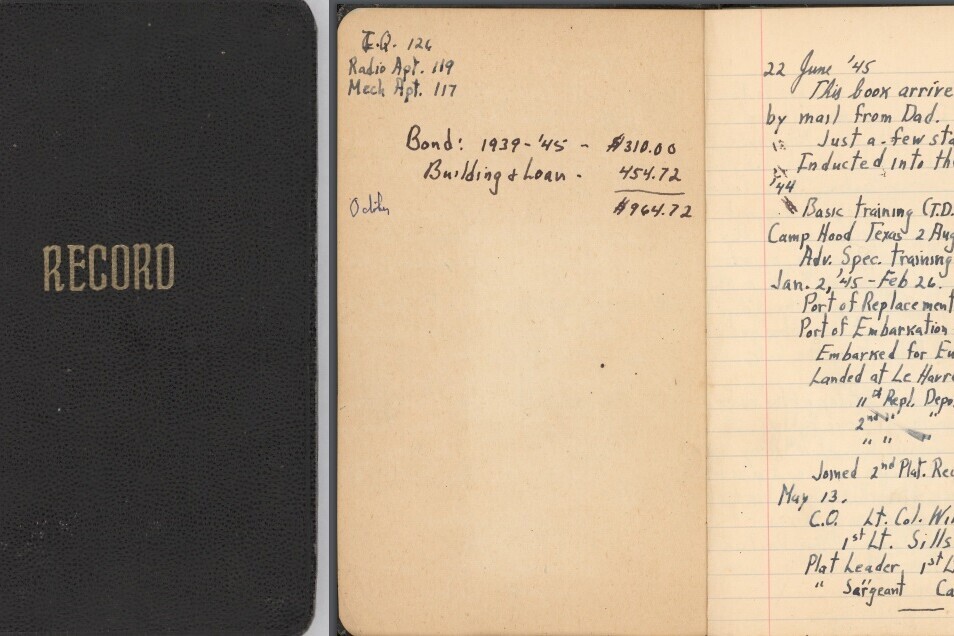 RECORD
I.Q. 126
Radio Apt. 119
Mech Apt. 117
Bond: 1939-'45 - $310.00
Building & Loan - 454.72
$964.72
October
22 June '45
This book arrive
by mail from Dad.
Just a few sta
Inducted into the
'44
Basic training (T.D.
Camp Hood Texas 2 Aug
Adv. Spec. training
Jan. 2, '45 - Feb 26.
Port of Replacement
Port of Embarkation
Embarked for Eu
Landed at Le Havre
11th Repl. Depo
2nd " "
" " "
Joined 2nd Plat. Rec
May 13.
C.O. Lt. Col. Wil
1st Lt. Sills
Plat Leader, 1st L
" Sargeant Ca